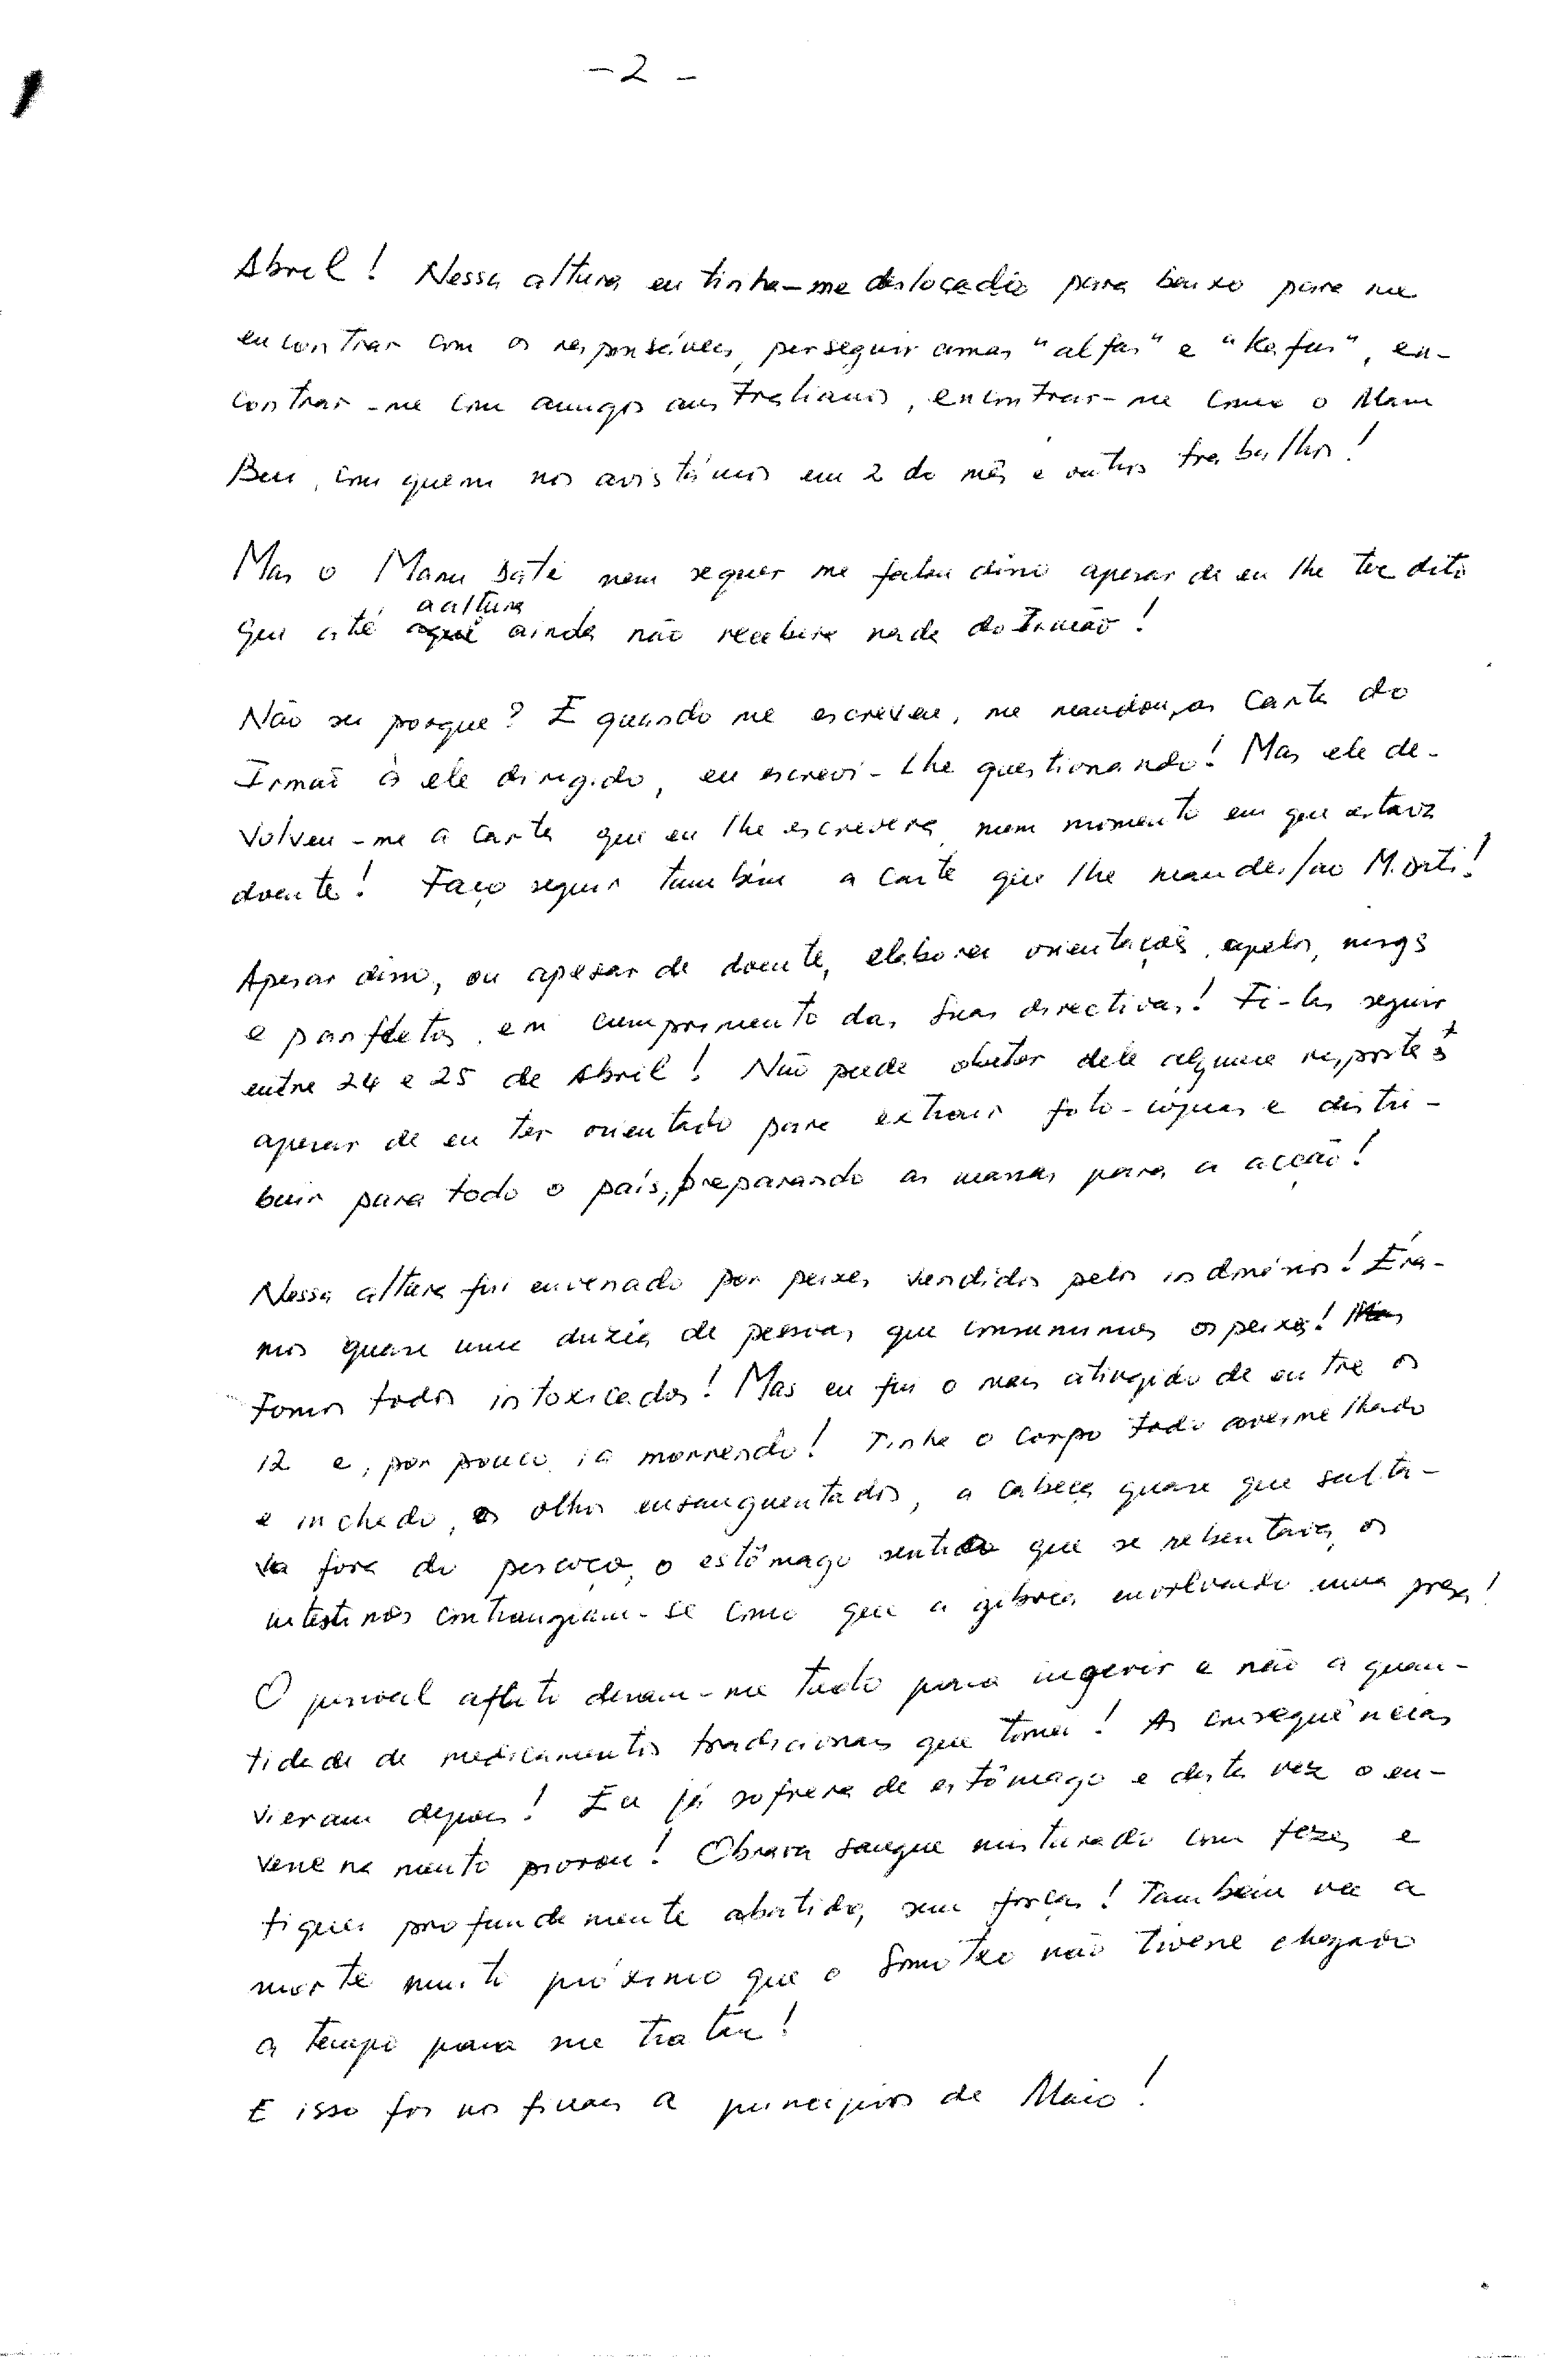 - 2 -
Abril! Nessa altura eu tinha-me deslocado para baixo para me
encontrar com os responsáveis, perseguir armas "alfas" e "Kafus", en-
contrar-me com amigos australianos, encontrar-me com o Mau
Beu, com quem nos avistámos em 2 do mês e outros trabalhos!
Mas o Manu Daté nem sequer me falou disso apesar de eu lhe ter dito
que até a altura ainda não recebera nada do Irmão!
Não sei porque? E quando me escreveu, me mandou, a carta do
Irmão à ele dirigido, eu escrevi-lhe questionando! Mas ele de-
volveu-me a carta que eu lhe escrevera num momento em que estava
doente! Faço seguir também a carta que lhe mandei/ao M. Dati!
Apesar disso, ou apesar de doente, elaborei orientações, apelos,
e panfletos, em cumprimento das suas directivas! Fi-los seguir
entre 24 e 25 de Abril! Não pude obter dele alguma resposta
apesar de eu ter orientado para extrair foto-cópias e distri-
buir para todo o país, preparando as massas para a acção!
Nessa altura fui envenado por peixes vendidos pelos indonésios! Éra-
mos quase uma duzia de pessoas que consumimos os peixes! Mas
Fomos todos intoxicados! Mas eu fui o mais atingido de entre os
12 e, por pouco ia morrendo! Tinha o corpo todo avermelhado
e inchado, os olhos ensanguentados, a cabeça quase que salta-
va fora do pescoço, o estômago sentido que se rebentava, os
intestinos contrangiam-se como que a gibóia envolvendo uma presa!
O pessoal aflito deram-me tudo para ingerir e não a quan-
tidade de medicamentos tradicionais que tomei! As consequências
vieram depois! Eu já sofrera de estômago e desta vez o en-
venenamento piorou! Obrava sangue misturado com fezes e
fiquei profundamente abatido, sem forças! Também vi a
morte muito próximo que o Somotxo não tivesse chegado
a tempo para me tratar!
E isso foi nos finais a princípios de Maio!